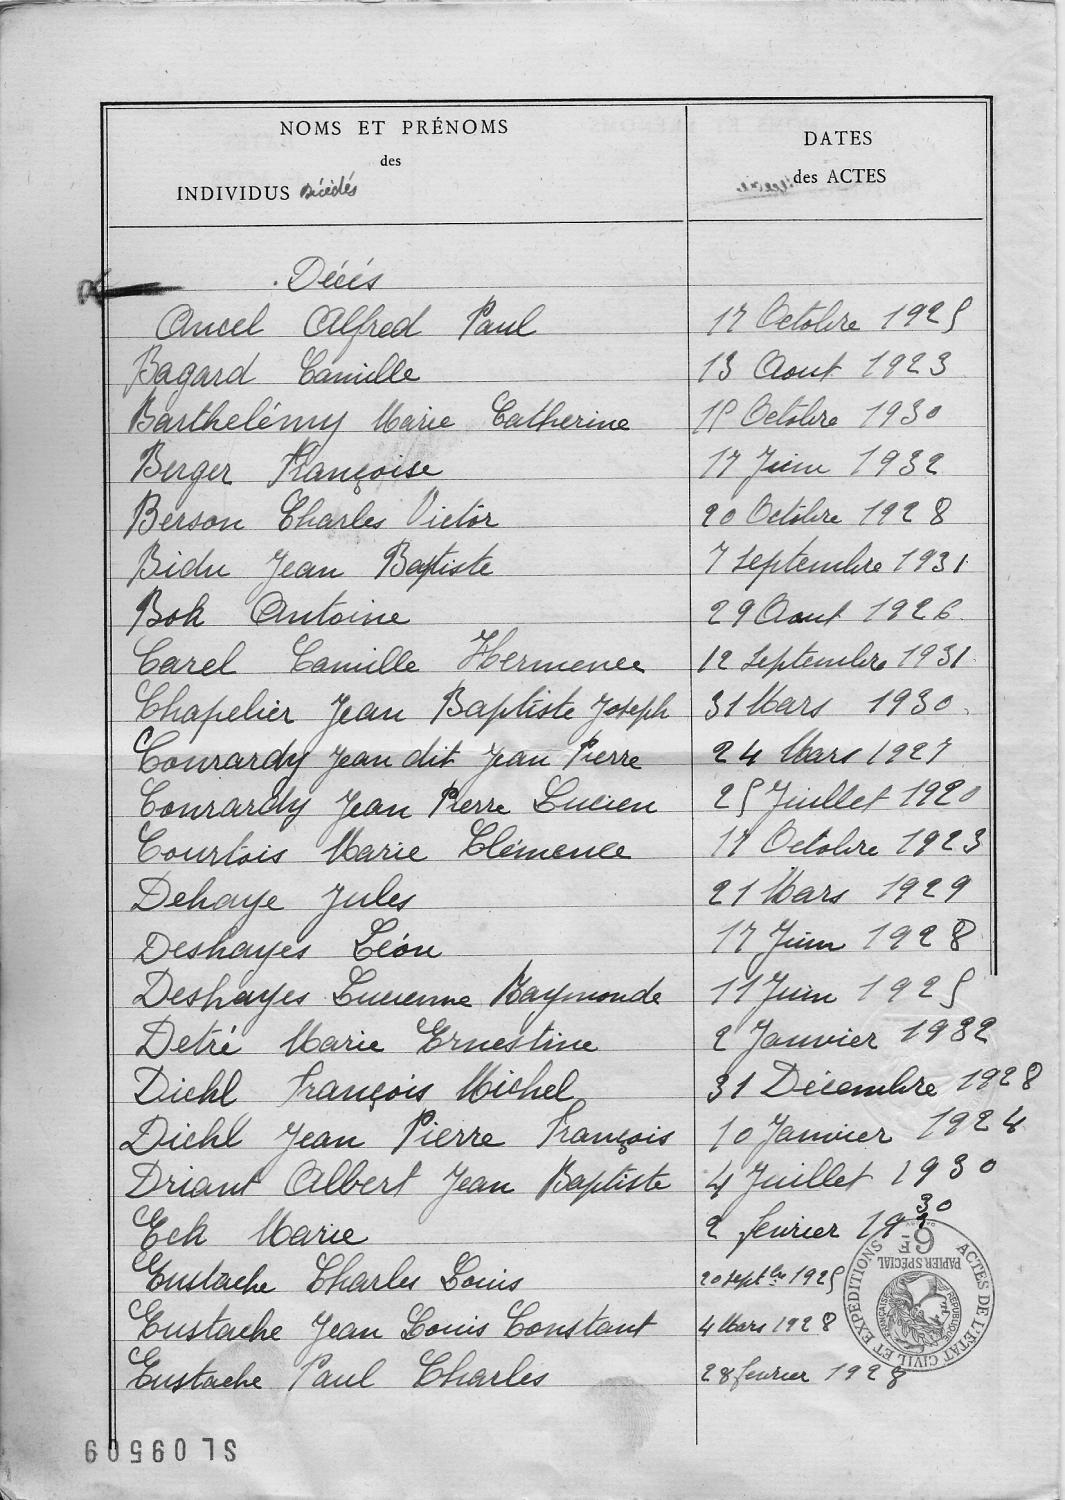 NOMS ET PRÉNOMS
des
INDIVIDUS Décédés
DATES
des ACTES
Décés
Ancel Alfred Paul 17 Octobre 1925
Bagard Camille 13 Aout 1923
Barthelémy Marie Catherine 15 Octobre 1930
Berger Françoise 17 Juin 1932
Berson Charles Victor 20 Octobre 1928
Bidu Jean Baptiste 7 Septembre 1931
Bok Antoine 29 Aout 1926
Carel Camille Hermence 12 Septembre 1931
Chapelier Jean Baptiste Joseph 31 Mars 1930
Conrardy Jean dit Jean Pierre 24 Mars 1927
Conrardy Jean Pierre Lucien 25 Juillet 1920
Courtois Marie Clémence 17 Octobre 1923
Dehaye Jules 21 Mars 1929
Deshayes Léon 17 Juin 1928
Deshayes Lucienne Raymonde 11 Juin 1925
Detré Marie Ernestine 2 Janvier 1932
Diehl François Michel 31 Décembre 1928
Diehl Jean Pierre François 10 Janvier 1924
Driant Albert Jean Baptiste 4 Juillet 1930
Eck Marie 2 février 1930
Eustache Charles Louis 20 Septbre 1925
Eustache Jean Louis Constant 4 Mars 1928
Eustache Paul Charles 28 fevrier 1928
ACTES DE L'ETAT CIVIL ET EXPEDITIONS
PAPIER SPECIAL
6F
REPUBLIQUE FRANÇAISE
SL 09509